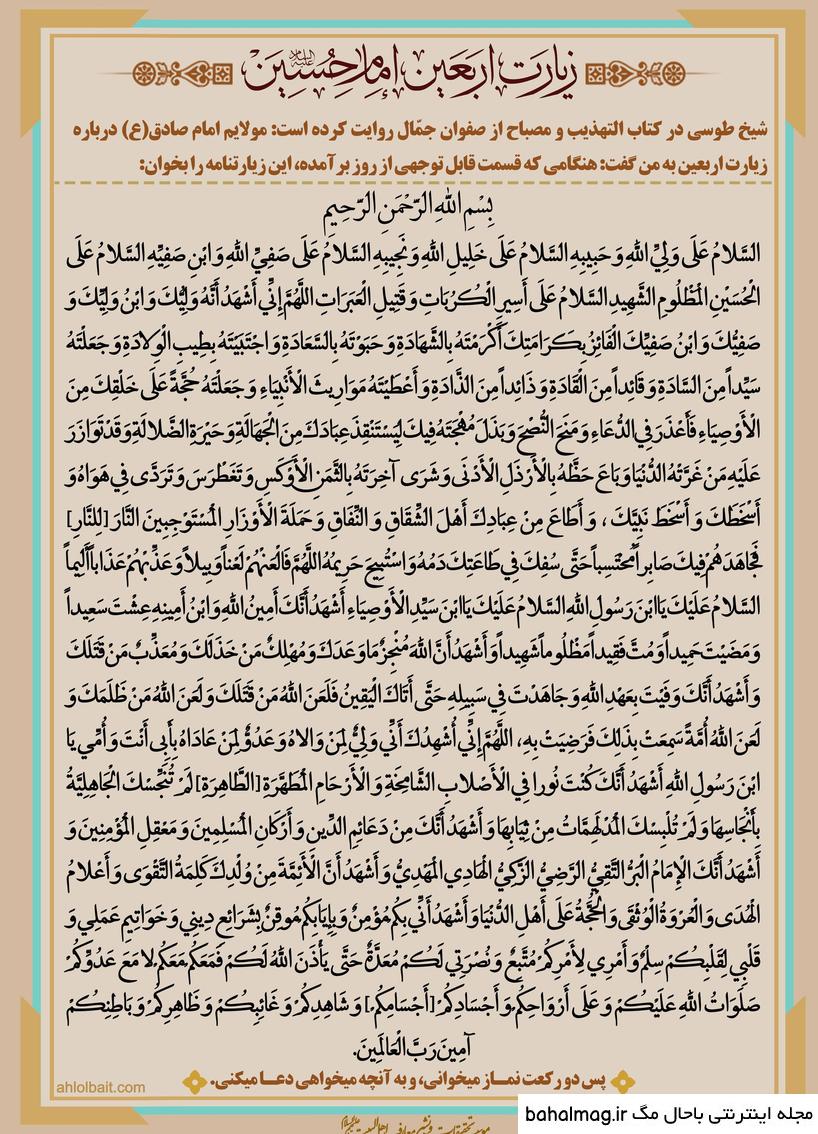 زیارت اربعین امام حسین علیه‌السلام
شیخ طوسی در کتاب التهذیب و مصباح از صفوان جمّال روایت کرده است: مولایم امام صادق(ع) درباره
زیارت اربعین به من گفت: هنگامی که قسمت قابل توجهی از روز بر آمده، این زیارتنامه را بخوان:
بِسْمِ اللهِ الرَّحْمَنِ الرَّحِيمِ
السَّلامُ عَلَى وَلِيِّ اللهِ وَ حَبِيبِهِ السَّلامُ عَلَى خَلِيلِ اللهِ وَ نَجِيبِهِ السَّلامُ عَلَى صَفِيِّ اللهِ وَ ابْنِ صَفِيِّهِ السَّلامُ عَلَى
الْحُسَيْنِ الْمَظْلُومِ الشَّهِيدِ السَّلامُ عَلَى أَسِيرِ الْكُرُبَاتِ وَ قَتِيلِ الْعَبَرَاتِ اللَّهُمَّ إِنِّي أَشْهَدُ أَنَّهُ وَلِيُّكَ وَ ابْنُ وَلِيِّكَ وَ
صَفِيُّكَ وَ ابْنُ صَفِيِّكَ الْفَائِزُ بِكَرَامَتِكَ أَكْرَمْتَهُ بِالشَّهَادَةِ وَ حَبَوْتَهُ بِالسَّعَادَةِ وَ اجْتَبَيْتَهُ بِطِيبِ الْوِلادَةِ وَ جَعَلْتَهُ
سَيِّداً مِنَ السَّادَةِ وَ قَائِداً مِنَ الْقَادَةِ وَ ذَائِداً مِنَ الذَّادَةِ وَ أَعْطَيْتَهُ مَوَارِيثَ الْأَنْبِيَاءِ وَ جَعَلْتَهُ حُجَّةً عَلَى خَلْقِكَ مِنَ
الْأَوْصِيَاءِ فَأَعْذَرَ فِي الدُّعَاءِ وَ مَنَحَ النُّصْحَ وَ بَذَلَ مُهْجَتَهُ فِيكَ لِيَسْتَنْقِذَ عِبَادَكَ مِنَ الْجَهَالَةِ وَ حَيْرَةِ الضَّلالَةِ وَ قَدْ تَوَازَرَ
عَلَيْهِ مَنْ غَرَّتْهُ الدُّنْيَا وَ بَاعَ حَظَّهُ بِالْأَرْذَلِ الْأَدْنَى وَ شَرَى آخِرَتَهُ بِالثَّمَنِ الْأَوْكَسِ وَ تَغَطْرَسَ وَ تَرَدَّى فِي هَوَاهُ وَ
أَسْخَطَكَ وَ أَسْخَطَ نَبِيَّكَ ، وَ أَطَاعَ مِنْ عِبَادِكَ أَهْلَ الشِّقَاقِ وَ النِّفَاقِ وَ حَمَلَةَ الْأَوْزَارِ الْمُسْتَوْجِبِينَ النَّارَ [لِلنَّارِ]
فَجَاهَدَهُمْ فِيكَ صَابِراً مُحْتَسِباً حَتَّى سُفِكَ فِي طَاعَتِكَ دَمُهُ وَ اسْتُبِيحَ حَرِيمُهُ اللَّهُمَّ فَالْعَنْهُمْ لَعْناً وَبِيلاً وَ عَذِّبْهُمْ عَذَاباً أَلِيماً
السَّلامُ عَلَيْكَ يَا ابْنَ رَسُولِ اللهِ السَّلامُ عَلَيْكَ يَا ابْنَ سَيِّدِ الْأَوْصِيَاءِ أَشْهَدُ أَنَّكَ أَمِينُ اللهِ وَ ابْنُ أَمِينِهِ عِشْتَ سَعِيداً
وَ مَضَيْتَ حَمِيداً وَ مُتَّ فَقِيداً مَظْلُوماً شَهِيداً وَ أَشْهَدُ أَنَّ اللهَ مُنْجِزٌ مَا وَعَدَكَ وَ مُهْلِكٌ مَنْ خَذَلَكَ وَ مُعَذِّبٌ مَنْ قَتَلَكَ
وَ أَشْهَدُ أَنَّكَ وَفَيْتَ بِعَهْدِ اللهِ وَ جَاهَدْتَ فِي سَبِيلِهِ حَتَّى أَتَاكَ الْيَقِينُ فَلَعَنَ اللهُ مَنْ قَتَلَكَ وَ لَعَنَ اللهُ مَنْ ظَلَمَكَ وَ
لَعَنَ اللهُ أُمَّةً سَمِعَتْ بِذَلِكَ فَرَضِيَتْ بِهِ، اللَّهُمَّ إِنِّي أُشْهِدُكَ أَنِّي وَلِيٌّ لِمَنْ وَالاهُ وَ عَدُوٌّ لِمَنْ عَادَاهُ بِأَبِي أَنْتَ وَ أُمِّي يَا
ابْنَ رَسُولِ اللهِ أَشْهَدُ أَنَّكَ كُنْتَ نُورا فِي الْأَصْلابِ الشَّامِخَةِ وَ الْأَرْحَامِ الْمُطَهَّرَةِ [الطَّاهِرَةِ] لَمْ تُنَجِّسْكَ الْجَاهِلِيَّةُ
بِأَنْجَاسِهَا وَ لَمْ تُلْبِسْكَ الْمُدْلَهِمَّاتُ مِنْ ثِيَابِهَا وَ أَشْهَدُ أَنَّكَ مِنْ دَعَائِمِ الدِّينِ وَ أَرْكَانِ الْمُسْلِمِينَ وَ مَعْقِلِ الْمُؤْمِنِينَ وَ
أَشْهَدُ أَنَّكَ الْإِمَامُ الْبَرُّ التَّقِيُّ الرَّضِيُّ الزَّكِيُّ الْهَادِي الْمَهْدِيُّ وَ أَشْهَدُ أَنَّ الْأَئِمَّةَ مِنْ وُلْدِكَ كَلِمَةُ التَّقْوَى وَ أَعْلامُ
الْهُدَى وَ الْعُرْوَةُ الْوُثْقَى وَ الْحُجَّةُ عَلَى أَهْلِ الدُّنْيَا وَ أَشْهَدُ أَنِّي بِكُمْ مُؤْمِنٌ وَ بِإِيَابِكُمْ مُوقِنٌ بِشَرَائِعِ دِينِي وَ خَوَاتِيمِ عَمَلِي وَ
قَلْبِي لِقَلْبِكُمْ سِلْمٌ وَ أَمْرِي لِأَمْرِكُمْ مُتَّبِعٌ وَ نُصْرَتِي لَكُمْ مُعَدَّةٌ حَتَّى يَأْذَنَ اللهُ لَكُمْ فَمَعَكُمْ مَعَكُمْ لا مَعَ عَدُوِّكُمْ
صَلَوَاتُ اللهِ عَلَيْكُمْ وَ عَلَى أَرْوَاحِكُمْ وَ أَجْسَادِكُمْ [أَجْسَامِكُمْ] وَ شَاهِدِكُمْ وَ غَائِبِكُمْ وَ ظَاهِرِكُمْ وَ بَاطِنِكُمْ
آمِينَ رَبَّ الْعَالَمِينَ.
پس دو رکعت نماز میخوانی، و به آنچه میخواهی دعا میکنی.
ahlolbait.com
مجله اینترنتی باحال مگ bahalmag.ir